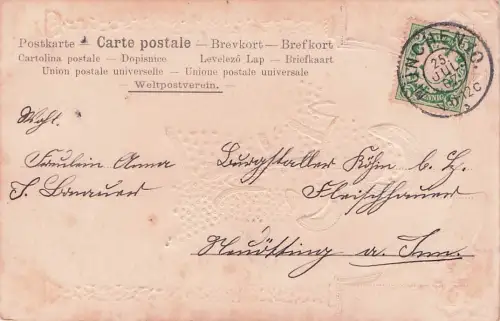 Postkarte — Carte postale — Brevkort — Brefkort
Cartolina postale — Dopisnice Levelező Lap — Briefkaart
Union postale universelle — Unione postale universale
— Weltpostverein. —
MÜNCHEN
25.
JUL.
Wohl.
Fräulein Anna
Burgstaller Köchin b. H.
Fleischhauer
Neuötting a. Inn.